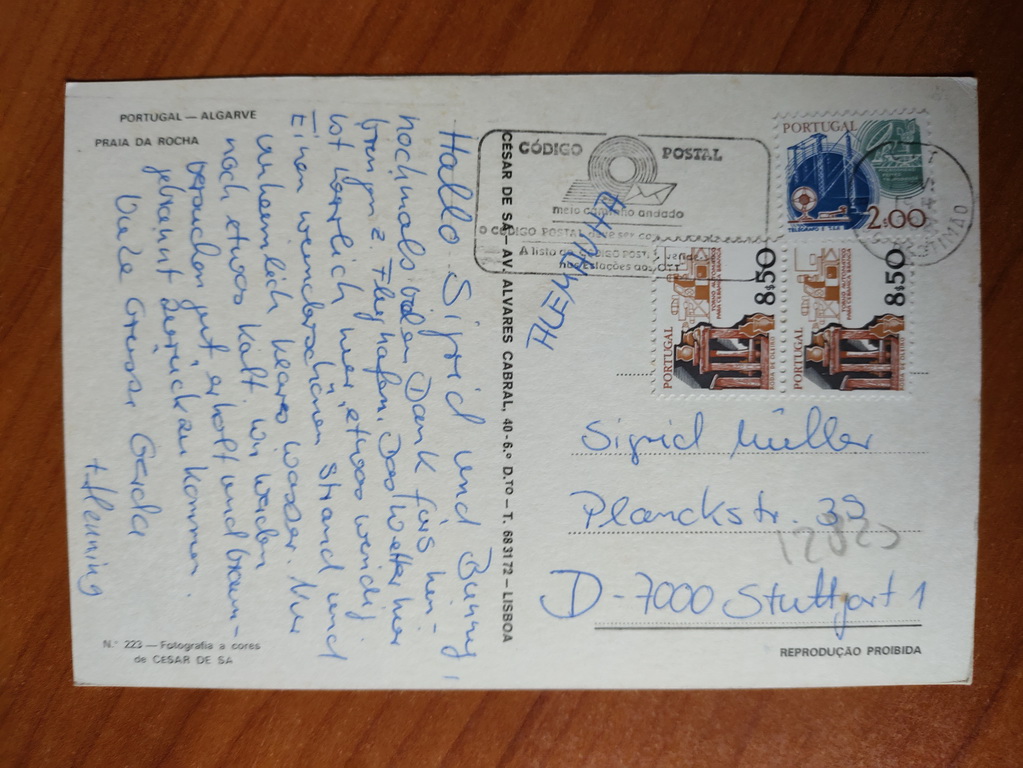 PORTUGAL — ALGARVE
PRAIA DA ROCHA
Hallo Sigrid und Bunny,
nochmals vielen Dank fürs hin-
bringen z. Flughafen. Das Wetter hier
ist herrlich hier, etwas windig.
Einen wunderschönen Strand und
unheimlich klares Wasser. Nur
noch etwas kalt. Wir werden
versuchen gut erholt und braun-
gebrannt zurückzukommen.
Viele Grüsse Gerda
+ Henning
N.° 223 — Fotografia a cores
de CESAR DE SA
CESAR DE SÁ — AV. ALVARES CABRAL, 40-6.° D.TO — T. 683172 — LISBOA
CÓDIGO POSTAL
meio caminho andado
O CÓDIGO POSTAL deve ser
A lista do CÓDIGO POSTAL
nas Estações dos CTT
ALEMANHA
PORTUGAL
2.00
PORTUGAL
8$50
PORTUGAL
8$50
Sigrid Müller
Planckstr. 39
12823
D-7000 Stuttgart 1
REPRODUÇÃO PROIBIDA